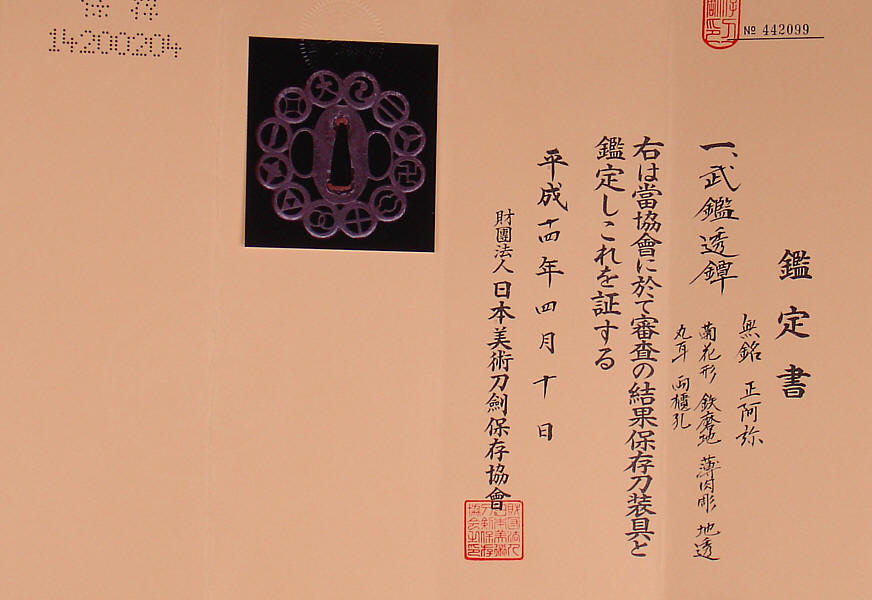 保存
14200204
№ 442099
鑑定書
一、武鑑透鐔
無銘 正阿弥
菊花形 鉄磨地 薄肉彫 地透
丸耳 両櫃孔
右は當協會に於て審査の結果保存刀装具と
鑑定しこれを証する
平成十四年四月十日
財團法人 日本美術刀劍保存協會